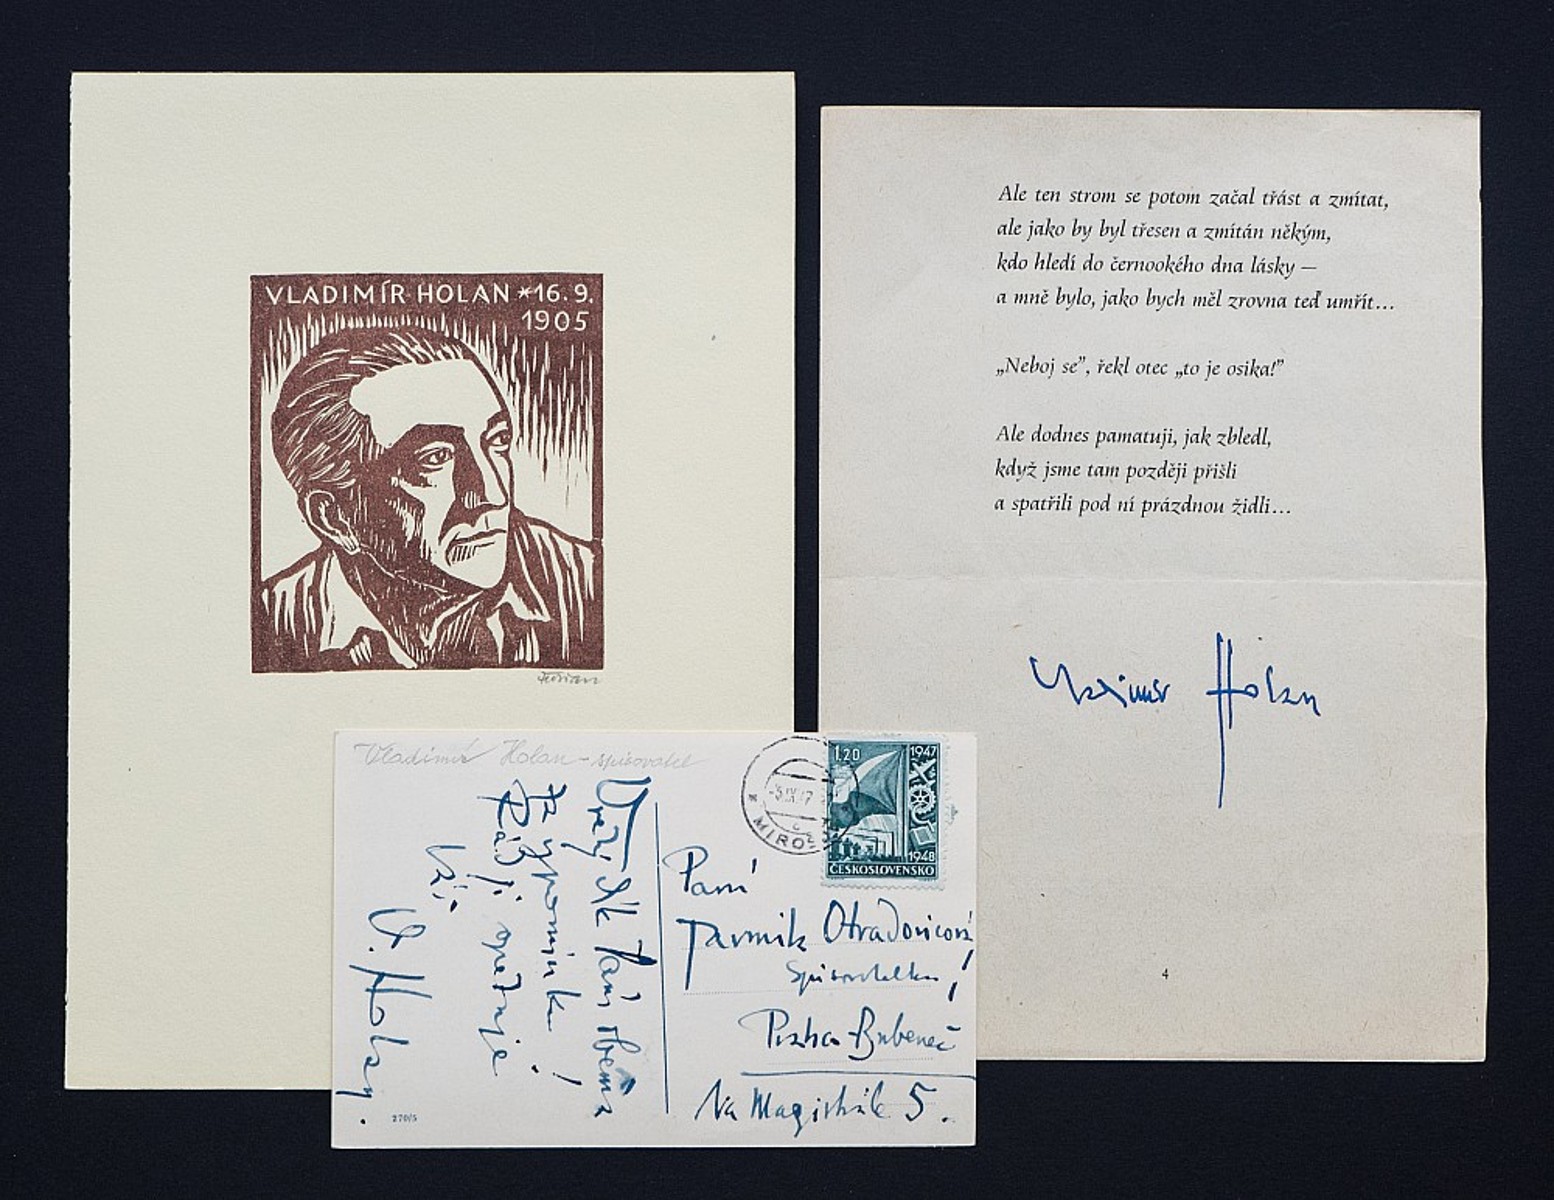 VLADIMÍR HOLAN *16.9.
1905
Ale ten strom se potom začal třást a zmítat,
ale jako by byl třesen a zmítán někým,
kdo hledí do černookého dna lásky —
a mně bylo, jako bych měl zrovna teď umřít...
„Neboj se”, řekl otec „to je osika!”
Ale dodnes pamatuji, jak zbledl,
když jsme tam později přišli
a spatřili pod ní prázdnou židli...
Vladimír Holan
4
Vladimír Holan - spisovatel
1.20
1947
1948
ČESKOSLOVENSKO
MIROS
Paní
Jarmila Otradovicová
spisovatelka
Praha-Bubeneč
Na Magistrále 5.
V. Holan.
270/5